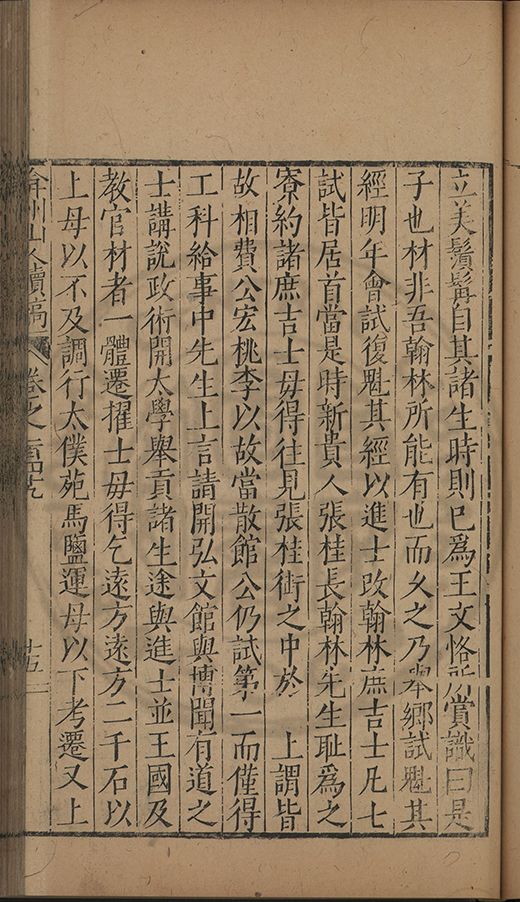 立美鬚髯自其諸生時則已爲王文恪所賞識曰是
子也材非吾翰林所能有也而久之乃舉鄉試魁其
經明年會試復魁其經以進士改翰林庶吉士凡七
試皆居首當是時新貴人張桂長翰林先生恥爲之
寮約諸庶吉士毋得往見張桂銜之中於　上謂皆
故相費公宏桃李以故當散館公仍試第一而僅得
工科給事中先生上言請開弘文館與博聞有道之
士講說政術開太學舉貢諸生途與進士並王國及
教官材者一體遷擢士毋得乞遠方遠方二千石以
上毋以不及調行太僕苑馬鹽運毋以下考遷又上
弇州山人續稿 卷之一百四十九 十五